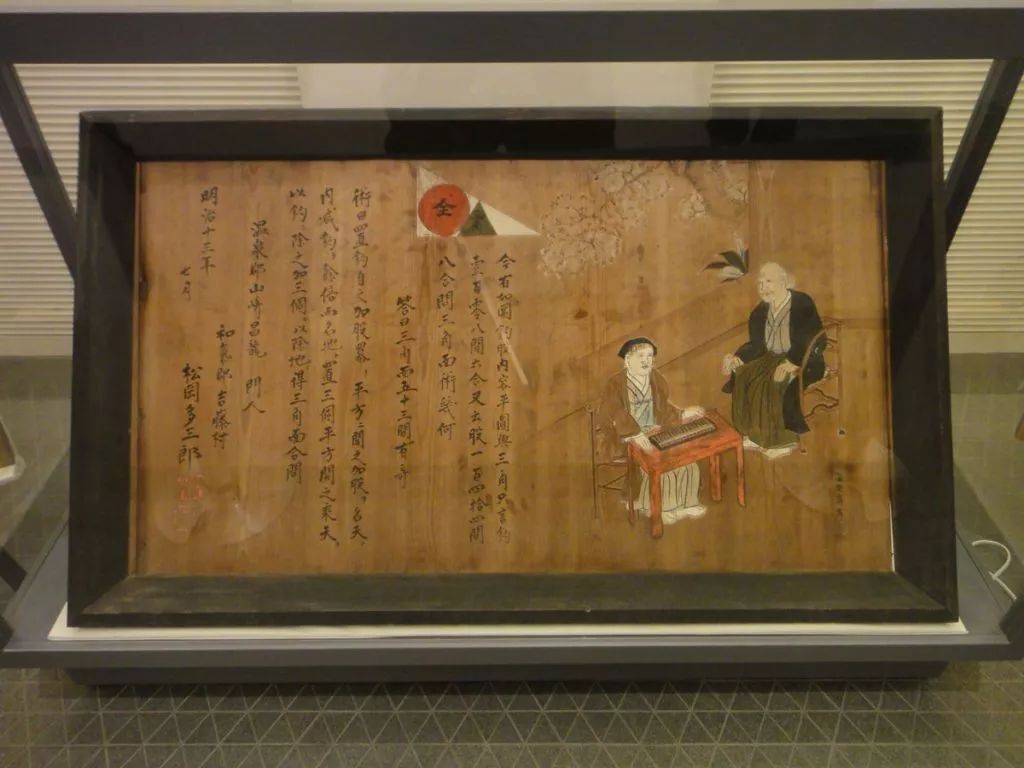 全
今有如圖鈎股内容平圓與三角只言鈎
壹百零八間六合又云股一百四拾四間
八合問三角面術幾何
答曰三角面五十三間有奇
術曰置鈎自之加股冪、平方ニ開之加股、名天、
内減鈎、餘倍而名地、置三個平方開之乗天、
以鈎除之加三個、以除地、得三角面合問
温泉郡山崎昌龍 門人
明治十三年
七月
和氣郡吉藤村
松岡多三郎